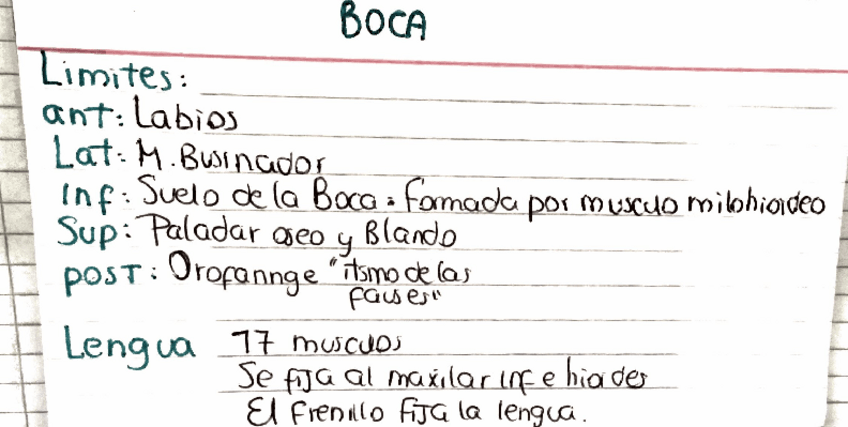 BOCA
Limites:
ant: Labios
Lat: M. Businador
Inf: Suelo de la Boca: formada por musculo milohioideo
Sup: Paladar oseo y Blando
post: Orofaringe "itsmo de las
fauses"
Lengua 17 musculos
Se fija al maxilar inf e hioides
El frenillo fija la lengua.